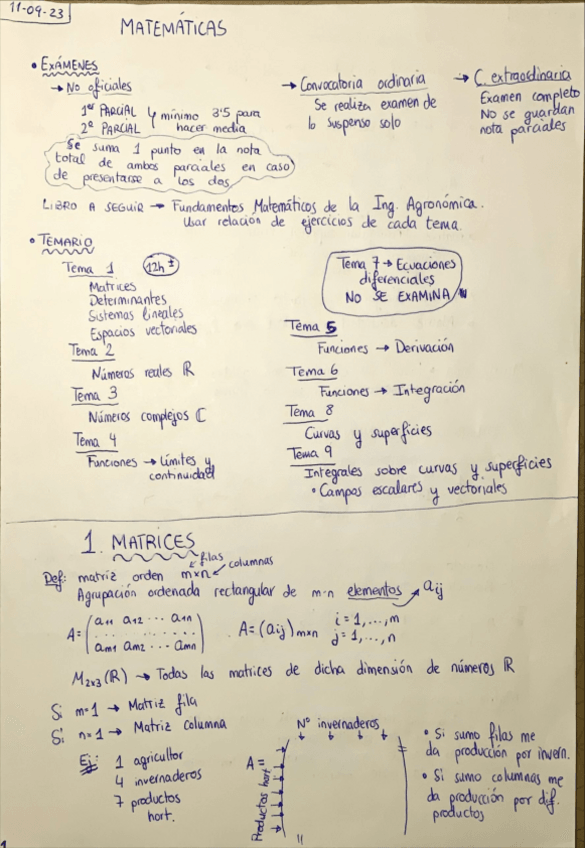 11-09-23
MATEMÁTICAS
• EXÁMENES
→ No oficiales
1er PARCIAL
2º PARCIAL
mínimo 3'5 para
hacer media
Se suma 1 punto en la nota
total de ambos parciales en caso
de presentarse a los dos
→ Convocatoria ordinaria
Se realiza examen de
lo suspenso solo
→ C. extraordinaria
Examen completo
No se guardan
nota parciales
LIBRO A SEGUIR → Fundamentos Matemáticos de la Ing. Agronómica.
Usar relación de ejercicios de cada tema.
• TEMARIO
Tema 1 12h ±
Matrices
Determinantes
Sistemas lineales
Espacios vectoriales
Tema 2
Números reales ℝ
Tema 3
Números complejos ℂ
Tema 4
Funciones → Límites y
continuidad
Tema 7 → Ecuaciones
diferenciales
NO SE EXAMINA
Tema 5
Funciones → Derivación
Tema 6
Funciones → Integración
Tema 8
Curvas y superficies
Tema 9
Integrales sobre curvas y superficies
• Campos escalares y vectoriales
1. MATRICES
filas
columnas
Def: matriz orden m×n
Agrupación ordenada rectangular de m·n elementos → aij
A = (a11 a12 ... a1n
... ... ...
am1 am2 ... amn)
A = (aij)m×n
i = 1,...,m
j = 1,...,n
M2×3 (ℝ) → Todas las matrices de dicha dimensión de números ℝ
Si m=1 → Matriz fila
Si n=1 → Matriz columna
Ej: 1 agricultor
4 invernaderos
7 productos
hort.
Nº invernaderos
A =
Productos hort.
• Si sumo filas me
da producción por invern.
• Si sumo columnas me
da producción por dif.
productos